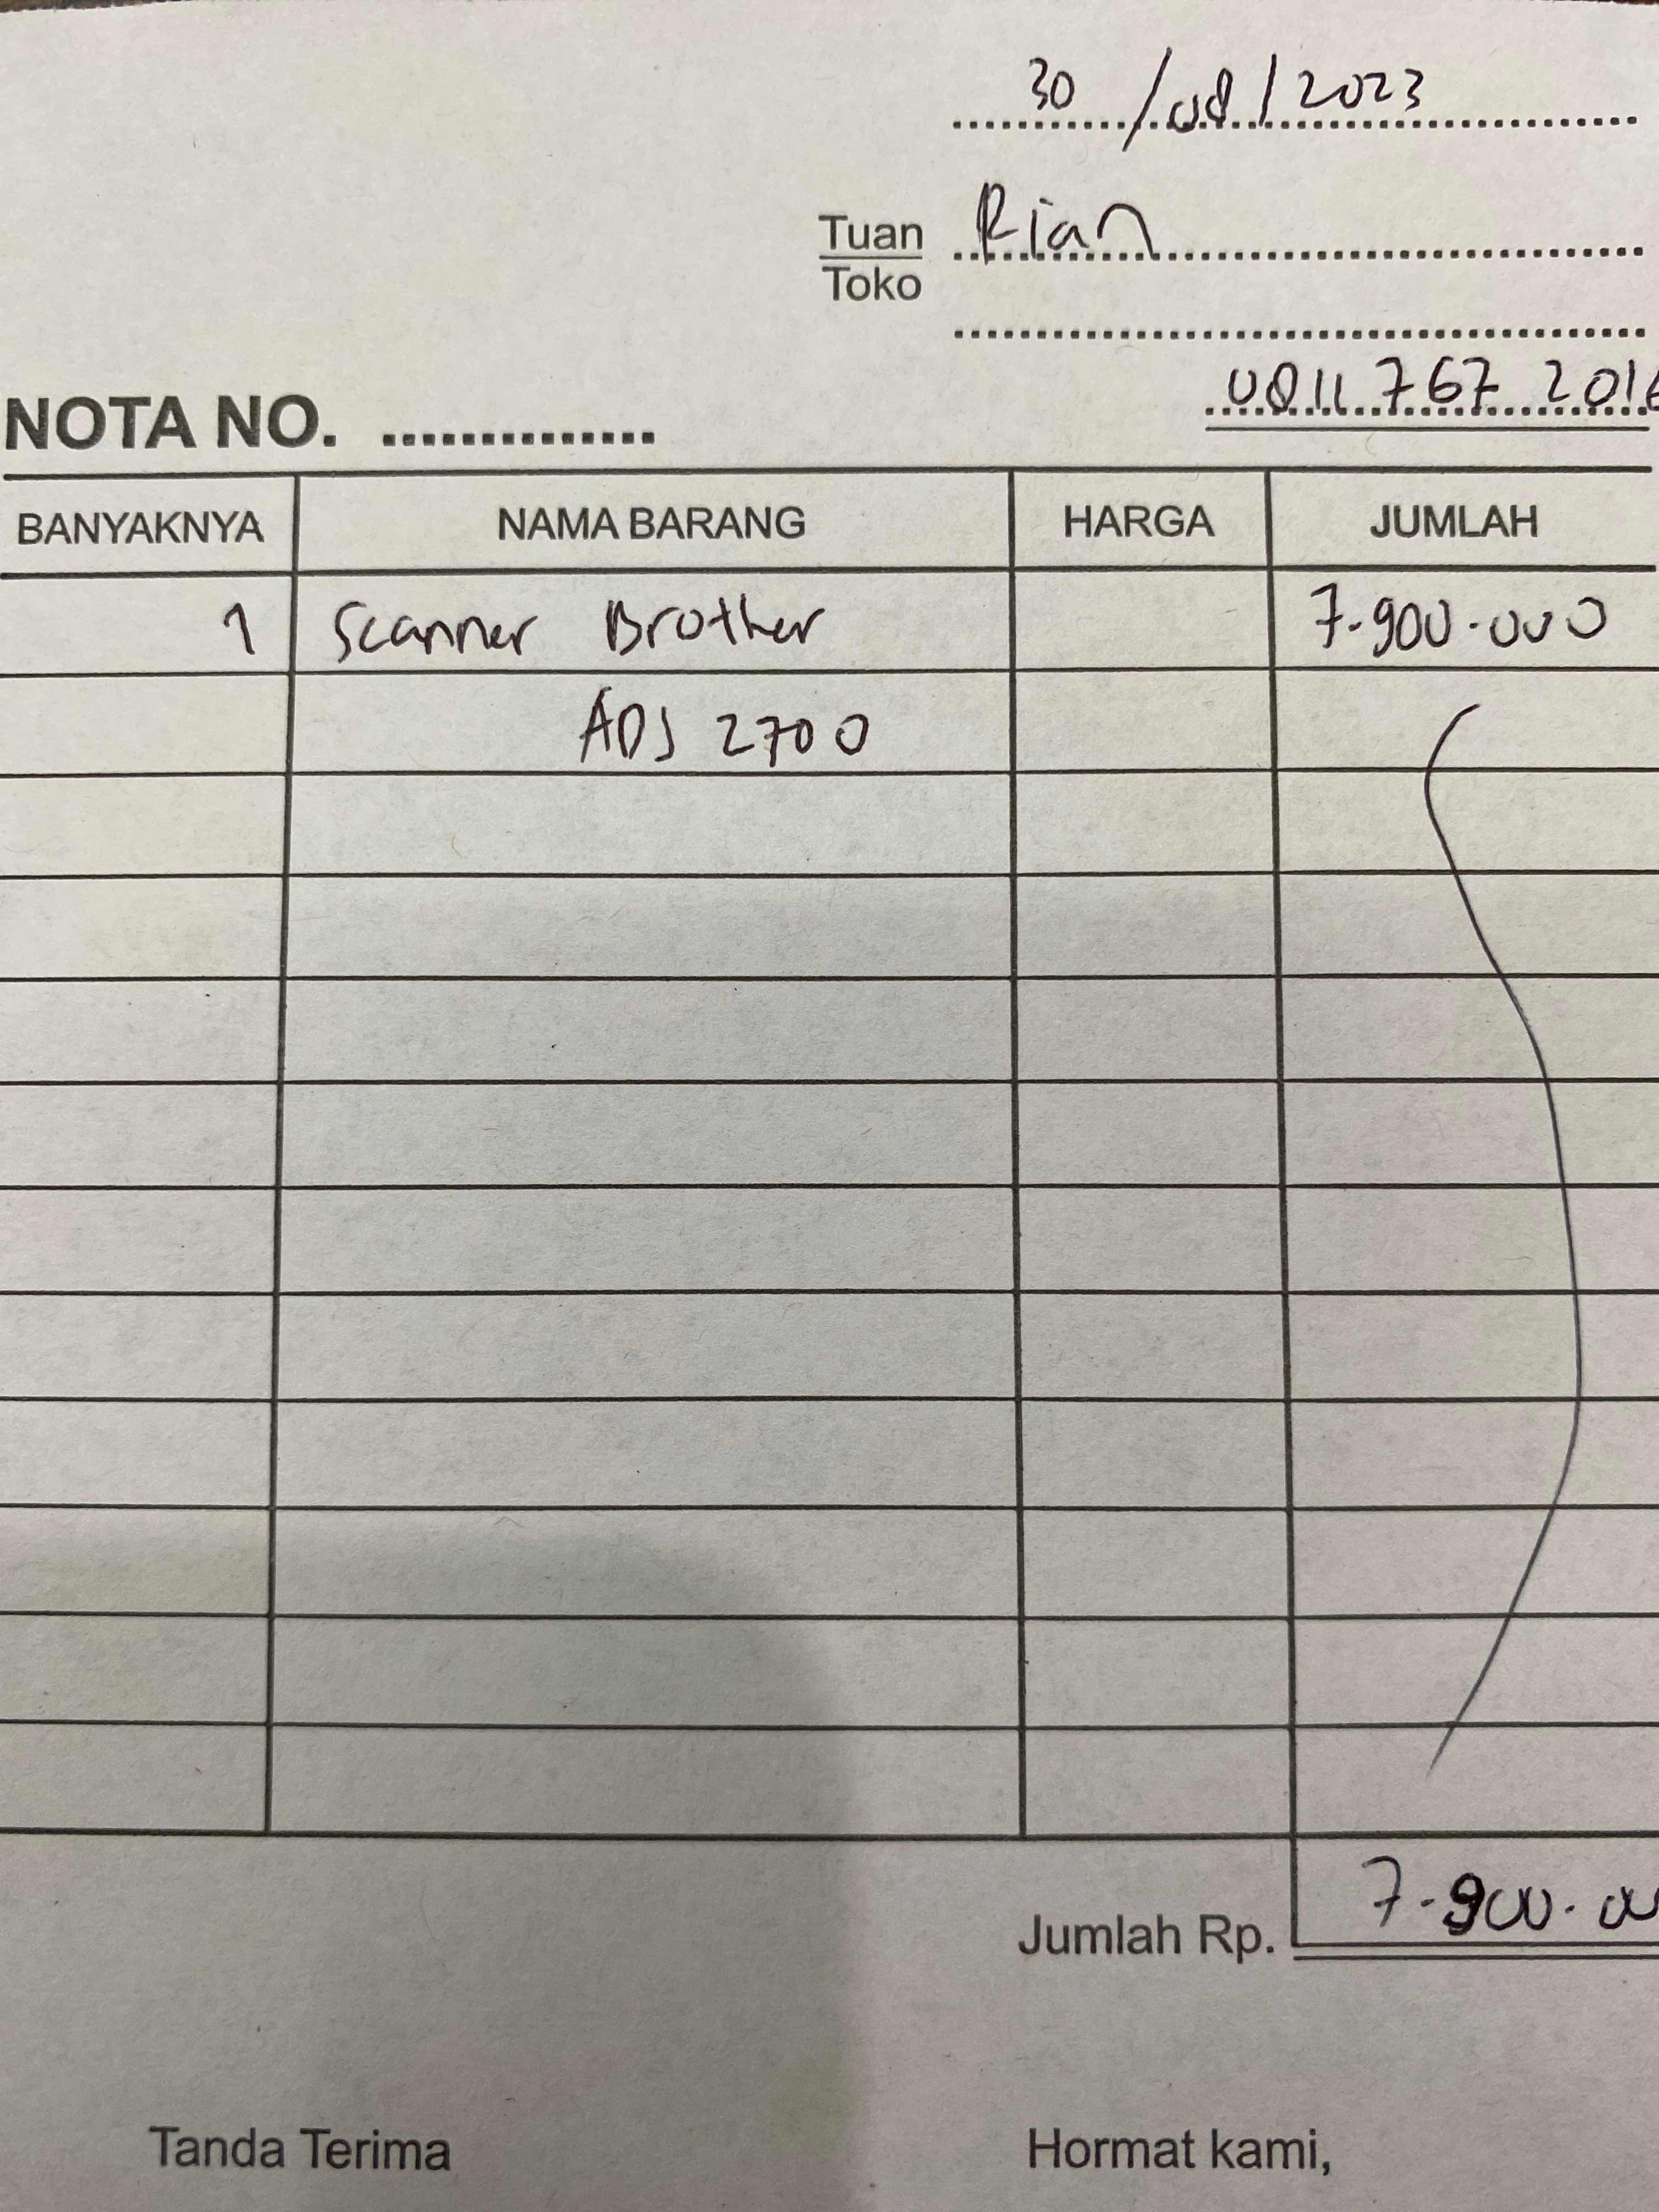 30/08/2023
Tuan Rian
Toko
0811 767 2016
NOTA NO. ..............
BANYAKNYA NAMA BARANG HARGA JUMLAH
1 Scanner Brother 7.900.000
ADS 2700
Jumlah Rp. 7.900.00
Tanda Terima Hormat kami,